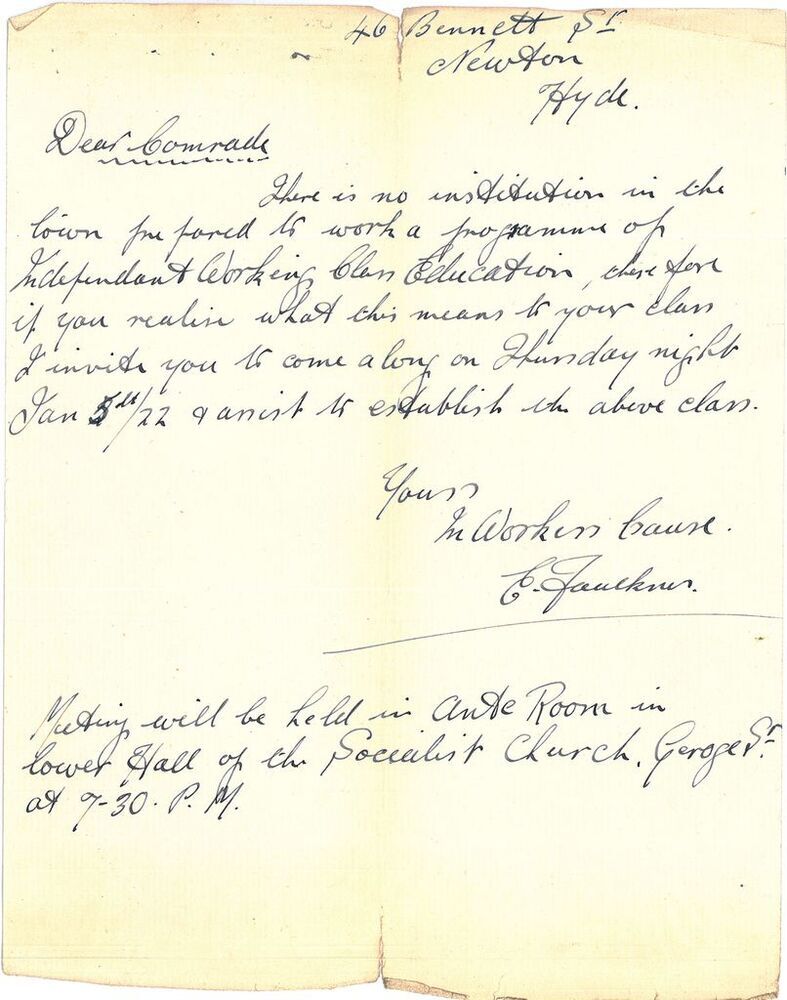 46 Bennett St
Newton
Hyde.
Dear Comrade
There is no institution in the
town prepared to work a programme of
Independant Working Class Education, therefore
if you realise what this means to your class
I invite you to come along on Thursday night
Jan 5th/22 & assist to establish the above class.
Yours
In Workers Cause.
E. Faulkner.
Meeting will be held in Ante Room in
lower Hall of the Socialist Church, Geroge St.
at 7-30. P.M.